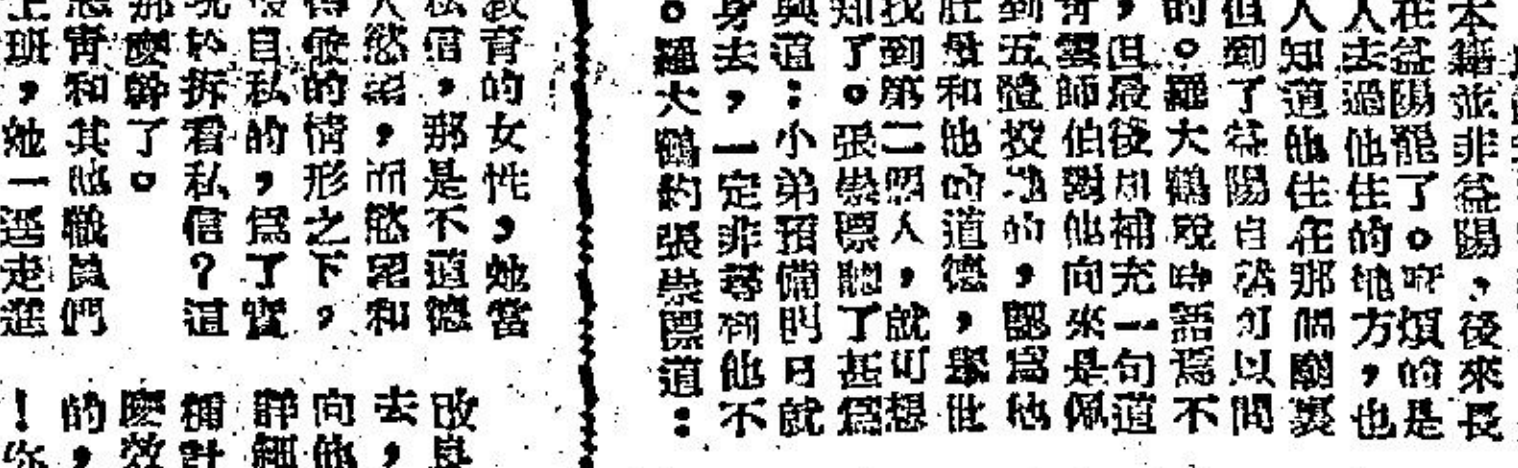 本籍並非益陽,後來長
在益陽罷了。麻煩的是
人去過他住的地方,也
人知道他住在那個廟裏
但到了益陽自然可以問
的。羅大鶴說時語焉不
,但最後却補充一句道
雲師伯對他向來是佩
到五體投地的,認為他
肚量和他的道德,舉世
找到第二人,就可想
知了。張崇標聽了甚為
興道:小弟預備明日就
身去,一定非尋他不
。羅大鶴約張崇標道:
教育的女性,她當
私信,那是不道德
人慾望,而慾望和
的情形之下,
自私的,為了實
於拆看私信?這
那麼幹了。
甯和其他職員們
上班,她一逕走進
改良
去,
向他
詳細
計
麼效
的,
!你